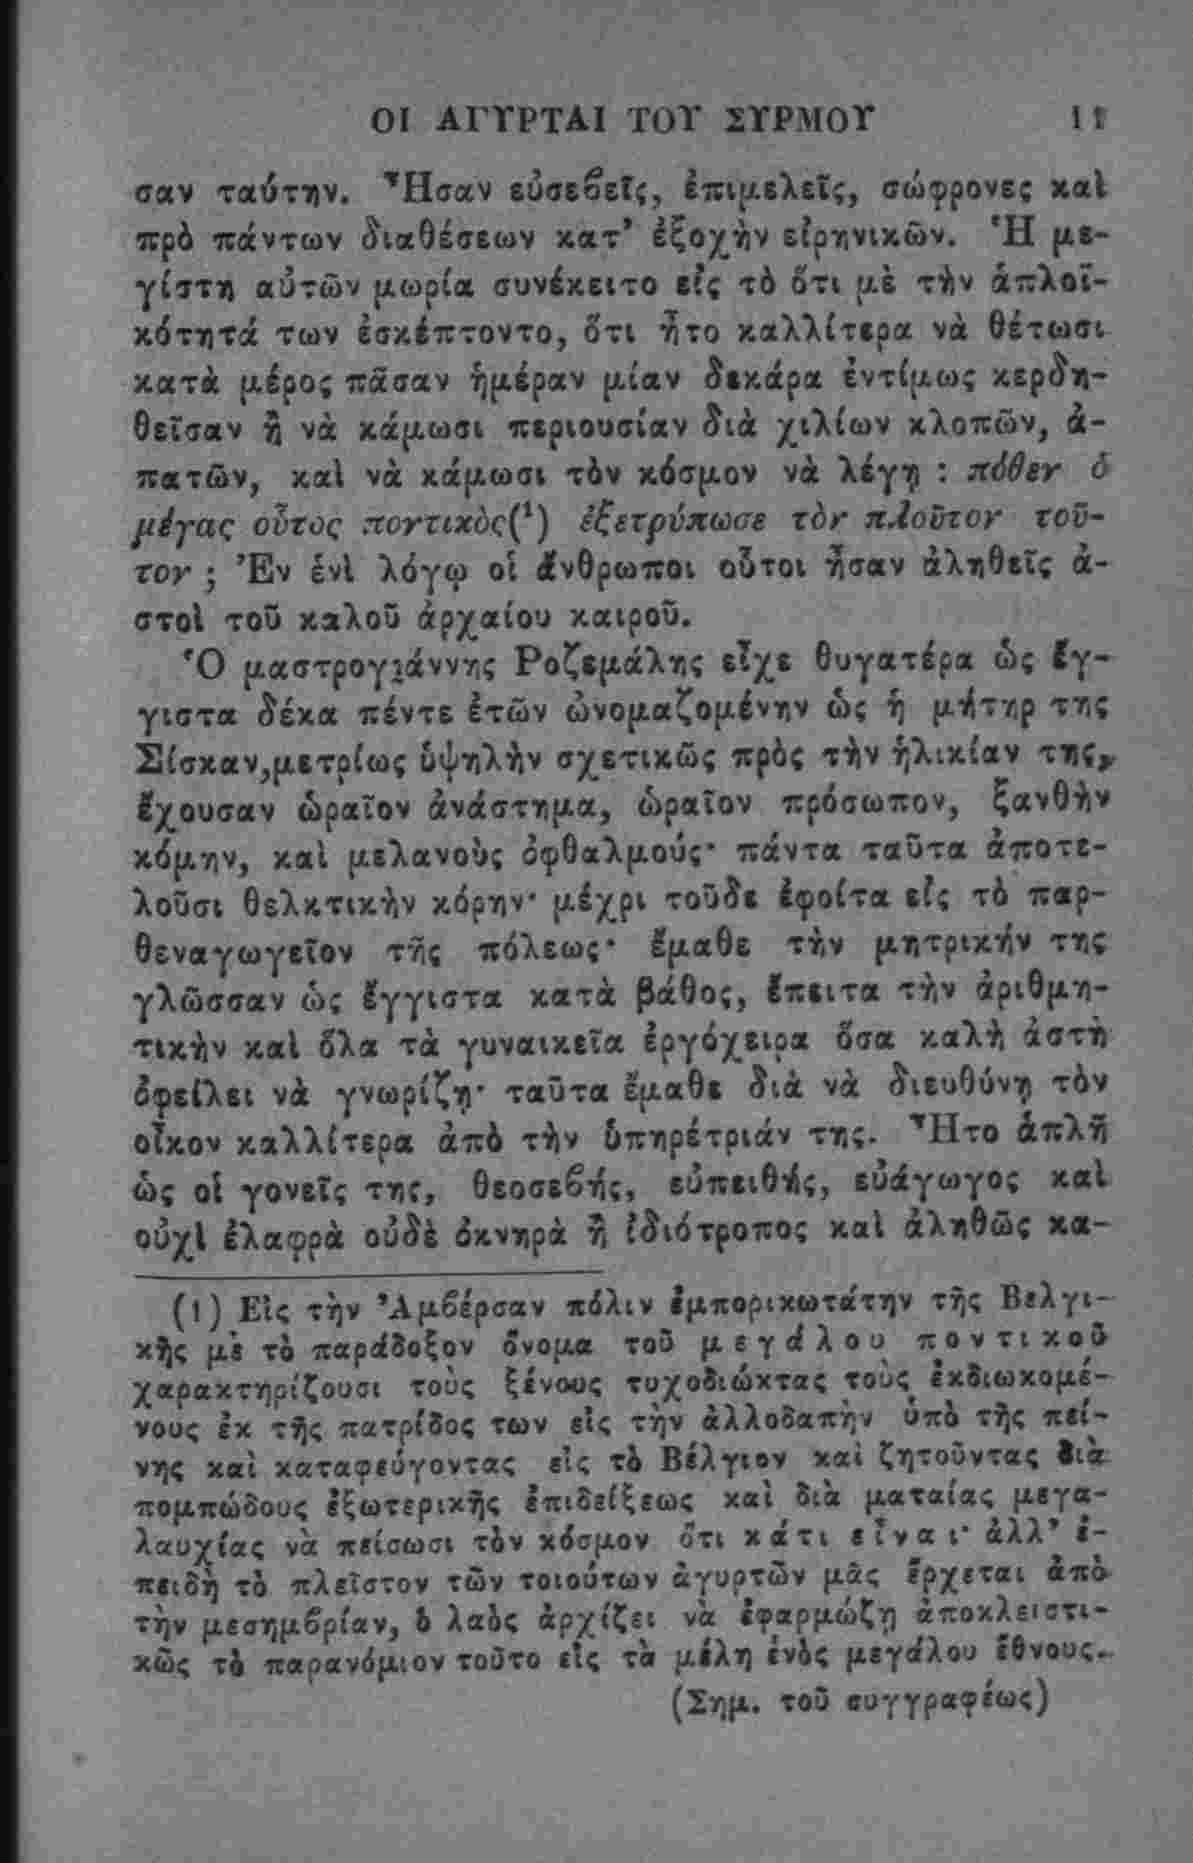 ΟΙ ΑΓΥΡΤΑΙ ΤΟΥ ΣΥΡΜΟΥ 11
σαν ταύτην. Ἦσαν εὐσεβεῖς, ἐπιμελεῖς, σώφρονες καὶ
πρὸ πάντων διαθέσεων κατ’ ἐξοχὴν εἰρηνικῶν. Ἡ με-
γίστη αὐτῶν μωρία συνέκειτο εἰς τὸ ὅτι μὲ τὴν ἁπλοϊ-
κότητά των ἐσκέπτοντο, ὅτι ἦτο καλλίτερα νὰ θέτωσι
κατὰ μέρος πᾶσαν ἡμέραν μίαν δεκάρα ἐντίμως κερδη-
θεῖσαν ἢ νὰ κάμωσι περιουσίαν διὰ χιλίων κλοπῶν, ἀ-
πατῶν, καὶ νὰ κάμωσι τὸν κόσμον νὰ λέγῃ : πόθεν ὁ
μέγας οὗτος ποντικὸς(¹) ἐξετρύπωσε τὸν πλοῦτον τοῦ-
τον ; Ἐν ἑνὶ λόγῳ οἱ ἄνθρωποι οὗτοι ἦσαν ἀληθεῖς ἀ-
στοὶ τοῦ καλοῦ ἀρχαίου καιροῦ.
Ὁ μαστρογιάννης Ροζεμάλης εἶχε θυγατέρα ὡς ἔγ-
γιστα δέκα πέντε ἐτῶν ὠνομαζομένην ὡς ἡ μήτηρ της
Σίσκαν,μετρίως ὑψηλὴν σχετικῶς πρὸς τὴν ἡλικίαν της,
ἔχουσαν ὡραῖον ἀνάστημα, ὡραῖον πρόσωπον, ξανθὴν
κόμην, καὶ μελανοὺς ὀφθαλμούς· πάντα ταῦτα ἀποτε-
λοῦσι θελκτικὴν κόρην· μέχρι τοῦδε ἐφοίτα εἰς τὸ παρ-
θεναγωγεῖον τῆς πόλεως· ἔμαθε τὴν μητρικήν της
γλῶσσαν ὡς ἔγγιστα κατὰ βάθος, ἔπειτα τὴν ἀριθμη-
τικὴν καὶ ὅλα τὰ γυναικεῖα ἐργόχειρα ὅσα καλὴ ἀστὴ
ὀφείλει νὰ γνωρίζῃ· ταῦτα ἔμαθε διὰ νὰ διευθύνῃ τὸν
οἶκον καλλίτερα ἀπὸ τὴν ὑπηρέτριάν της. Ἦτο ἁπλῆ
ὡς οἱ γονεῖς της, θεοσεβής, εὐπειθής, εὐάγωγος καὶ
οὐχὶ ἐλαφρὰ οὐδὲ ὀκνηρὰ ἢ ἰδιότροπος καὶ ἀληθῶς κα-
(1) Εἰς τὴν Ἀμβέρσαν πόλιν ἐμπορικωτάτην τῆς Βελγι-
κῆς μὲ τὸ παράδοξον ὄνομα τοῦ μεγάλου ποντικοῦ
χαρακτηρίζουσι τοὺς ξένους τυχοδιώκτας τοὺς ἐκδιωκομέ-
νους ἐκ τῆς πατρίδος των εἰς τὴν ἀλλοδαπὴν ὑπὸ τῆς πεί-
νης καὶ καταφεύγοντας εἰς τὸ Βέλγιον καὶ ζητοῦντας διὰ
πομπώδους ἐξωτερικῆς ἐπιδείξεως καὶ διὰ ματαίας μεγα-
λαυχίας νὰ πείσωσι τὸν κόσμον ὅτι κάτι εἶναι· ἀλλ’ ἐ-
πειδὴ τὸ πλεῖστον τῶν τοιούτων ἀγυρτῶν μᾶς ἔρχεται ἀπὸ
τὴν μεσημβρίαν, ὁ λαὸς ἀρχίζει νὰ ἐφαρμώζῃ ἀποκλειστι-
κῶς τὸ παρανόμιον τοῦτο εἰς τὰ μέλη ἑνὸς μεγάλου ἔθνους.
(Σημ. τοῦ συγγραφέως)